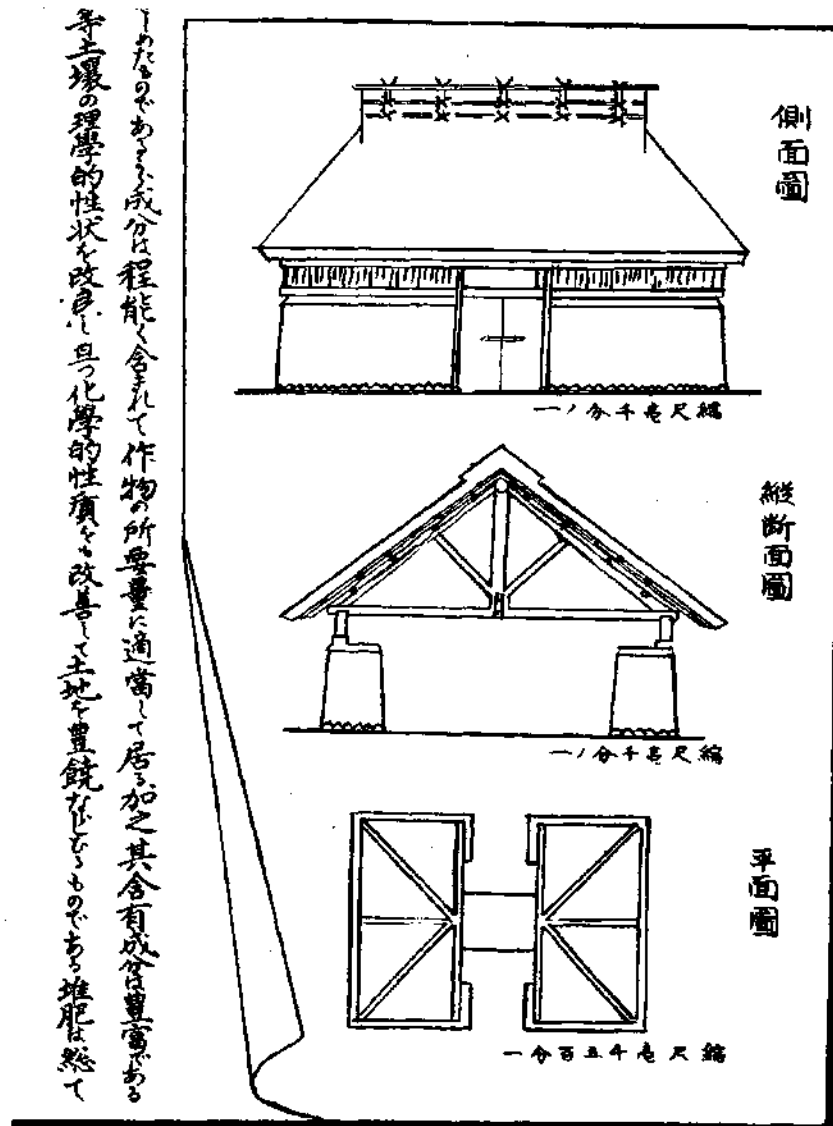 側面圖
縮尺壱千分ノ一
縦断面圖
縮尺壱千分ノ一
平面圖
縮尺壱千五百分一
しめたものであるから成分は程能く含まれて作物の所要量に適當して居る加之其含有成分は豊富である
等土壤の理學的性状を改良し且つ化學的性質をも改善して土地を豊饒ならしむるものである堆肥は総て